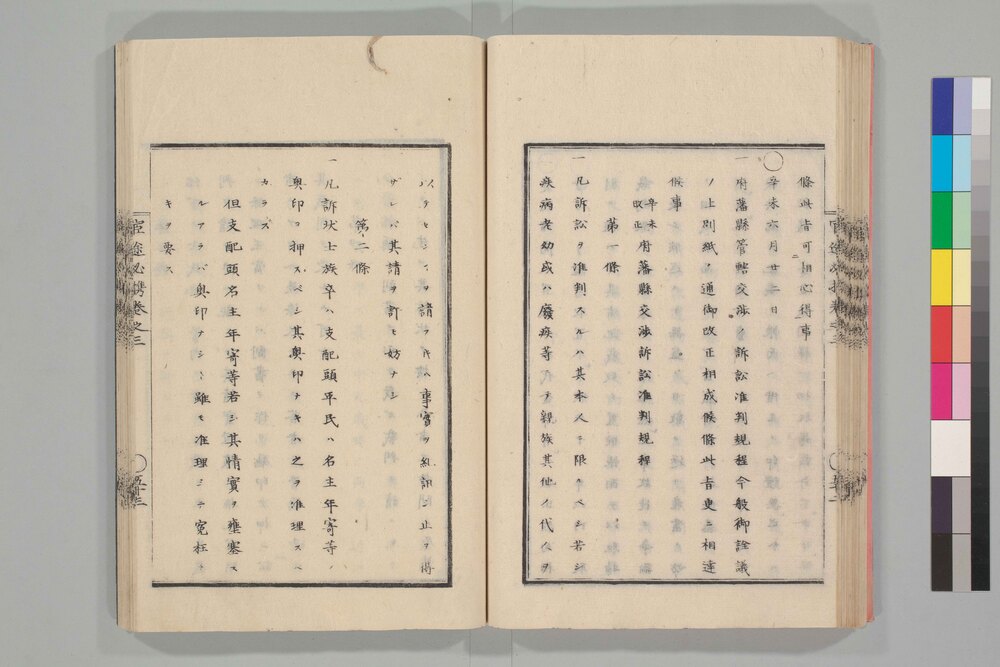 條此旨可相心得事
○辛未六月廿二日
一府藩縣管轄交渉ノ訴訟准判規程今般御詮議
ノ上別紙ノ通御改正相成候條此旨更ニ相達
候事
辛未改正府藩縣交渉訴訟准判規程
第一條
一凡訴訟ヲ准判スルハ其本人ニ限ルベシ若シ
疾病老幼或ハ廢疾等ニテ親族其他人代ランヲ
以テセンヿヲ請ヲ氏ハ事實ヲ糺訊シ止ヲ得
ザレバ其請ヲ許モ妨ナシ
第二條
一凡訴状士族卒ハ支配頭平民ハ名主年寄等ノ
奥印ヲ押スベシ其奥印ナキハ之ヲ准理スベ
カラズ
但支配頭名主年寄等若シ其情實ヲ壅塞ス
ルアラバ奥印ナシト雖モ准理シテ寃枉ナ
キヲ要ス
官途必携巻之三
五十二
官途必携巻之三
五十三